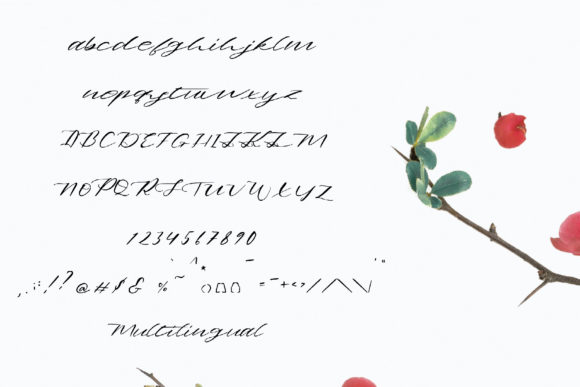 abcdefghijklm
nopqrstuvwxyz
ABCDEFGHIJKLM
NOPQRSTUVWXYZ
1234567890
,.:;!?@#$&%~*^
Multilingual